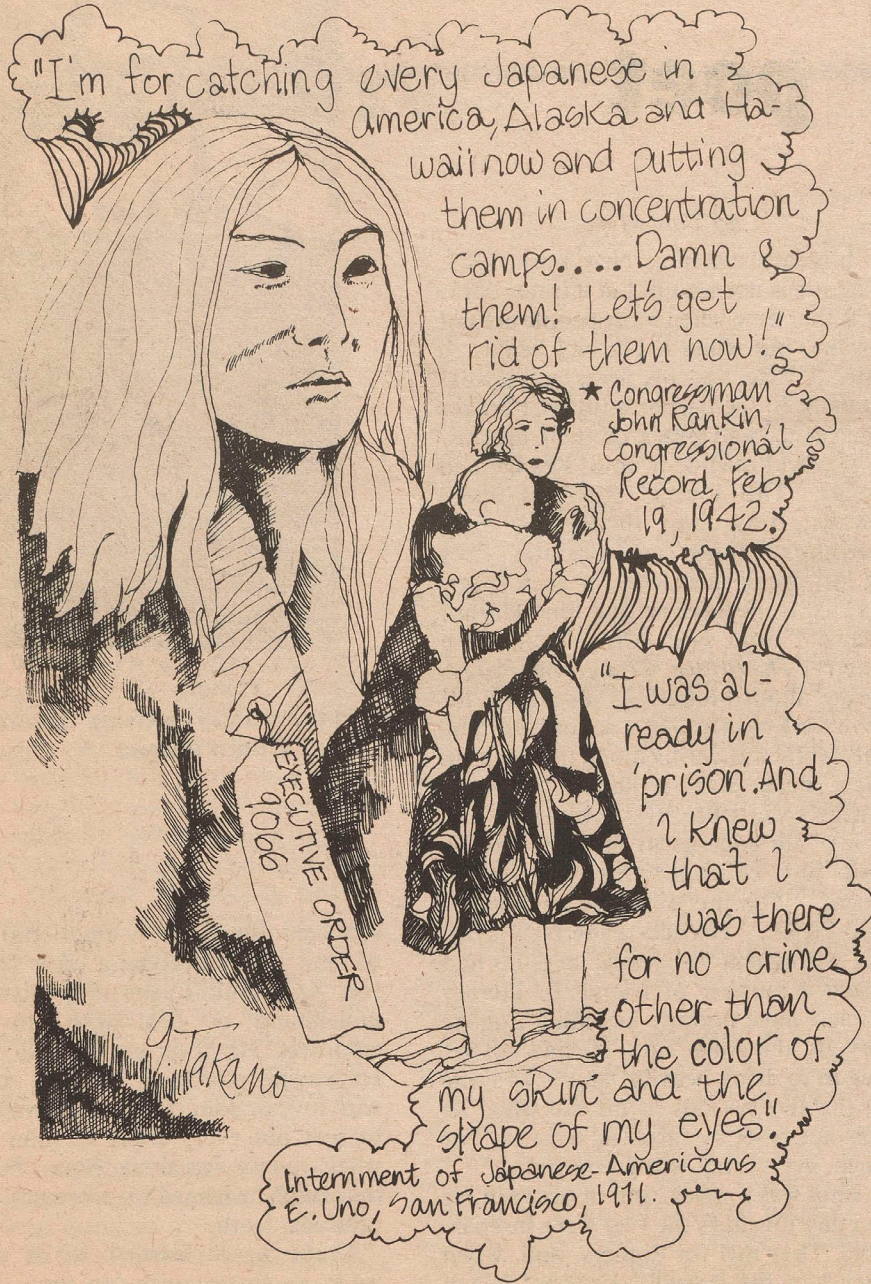 "I'm for catching every Japanese in
America, Alaska and Ha-
waii now and putting
them in concentration
camps.... Damn
them! Let's get
rid of them now!"
★ Congressman
John Rankin,
Congressional
Record, Feb
19, 1942.
EXECUTIVE ORDER
9066
"I was al-
ready in
'prison'. And
I knew
that I
was there
for no crime
other than
the color of
my skin and the
shape of my eyes".
Internment of Japanese-Americans
E. Uno, San Francisco, 1971.
G. Takano